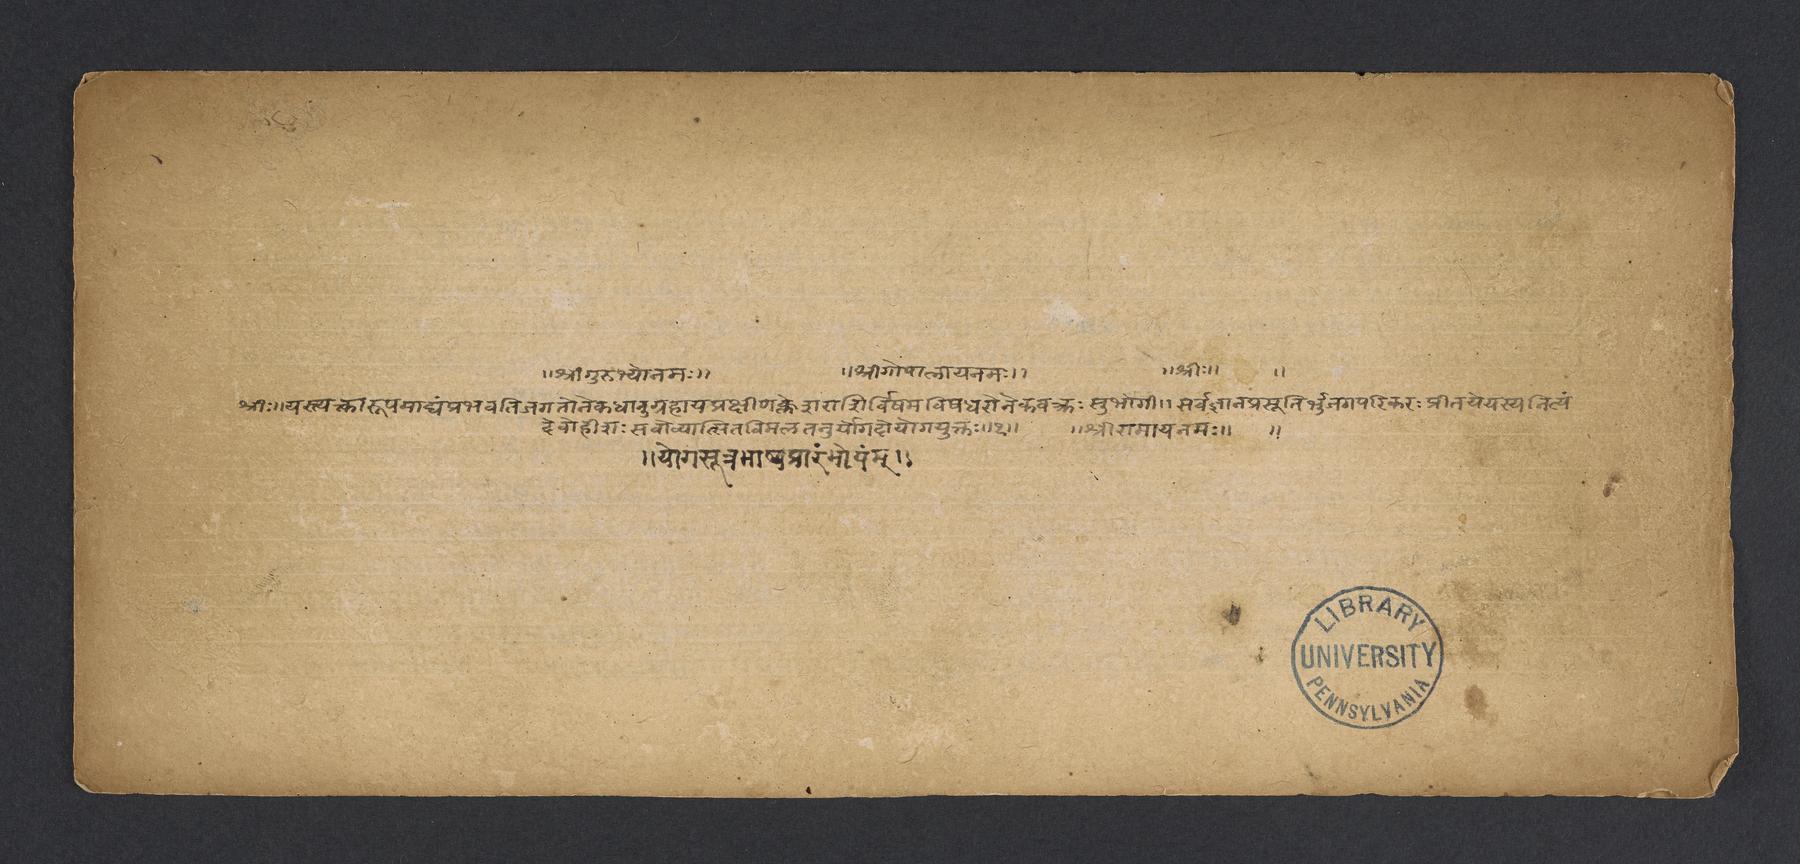 ॥श्रीगुरुभ्योनमः॥ ॥श्रीगोपालायनमः॥ ॥श्रीः॥ ॥
श्रीः॥यस्त्यक्तारूपमाद्यंप्रभवतिजगतोनेकधानुग्रहायप्रक्षीणक्लेशराशिर्विषमविषधरोनेकवक्त्रः सुभोगी॥ सर्वज्ञानप्रसूतिर्भुजगपरिकरः प्रीतयेयस्यनित्यं
देवोहीशः सवोव्यात्सितविमलतनुर्योगदोयोगयुक्तः॥१॥ ॥श्रीरामायनमः॥ ॥
॥योगसूत्रभाष्यप्रारंभोयंम्॥
LIBRARY
UNIVERSITY
PENNSYLVANIA